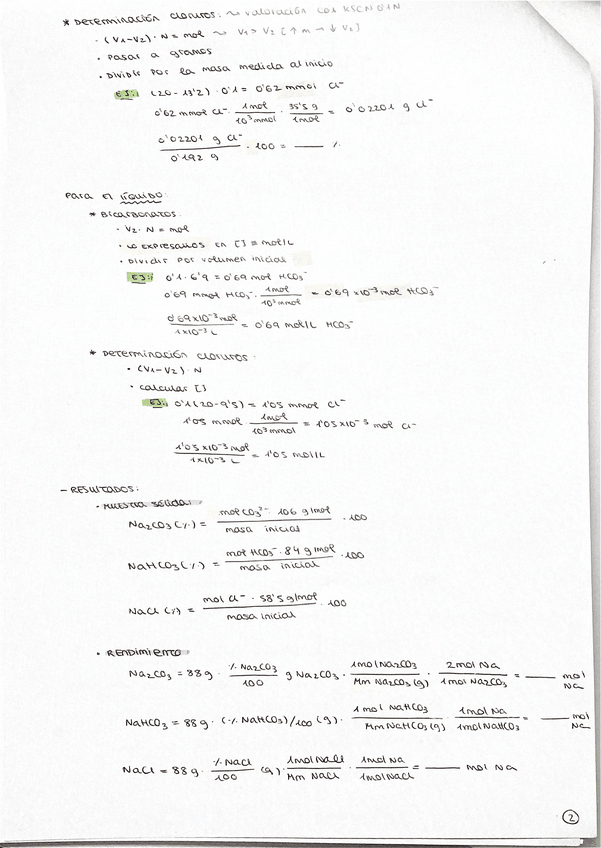 * Determinación cloruros: ~ valoración con KSCN 0'1N
· (V1-V2) · N = mol ~ V1 > V2 [↑ m → ↓ V2]
· Pasar a gramos
· Dividir por la masa medida al inicio
EJ: (20 - 13'2) · 0'1 = 0'62 mmol Cl⁻
0'62 mmol Cl⁻ · 1mol/10³mmol · 35'5 g/1mol = 0'02201 g Cl⁻
0'02201 g Cl⁻/0'192 g · 100 = ___ %
Para el líquido:
* Bicarbonatos.
· V2 · N = mol
· Lo expresamos en [] = mol/L
· Dividir por volumen inicial
EJ: 0'1 · 6'9 = 0'69 mol HCO3⁻
0'69 mmol HCO3⁻ · 1mol/10³mmol = 0'69 x10⁻³ mol HCO3⁻
0'69x10⁻³ mol/1x10⁻³ L = 0'69 mol/L HCO3⁻
* Determinación cloruros.
· (V1-V2) · N
· calcular []
EJ: 0'1 (20-9'5) = 1'05 mmol Cl⁻
1'05 mmol · 1mol/10³mmol = 1'05 x10⁻³ mol Cl⁻
1'05 x10⁻³ mol/1x10⁻³ L = 1'05 mol/L
- RESULTADOS:
· Muestra sólida:
Na2CO3 (%) = mol CO3²⁻ · 106 g/mol/masa inicial · 100
NaHCO3 (%) = mol HCO3⁻ · 84 g/mol/masa inicial · 100
NaCl (%) = mol Cl⁻ · 58'5 g/mol/masa inicial · 100
· Rendimiento
Na2CO3 = 88g · % Na2CO3/100 g Na2CO3 · 1mol Na2CO3/Mm Na2CO3 (g) · 2mol Na/1mol Na2CO3 = ___ mol Na
NaHCO3 = 88g · (% NaHCO3)/100 (g) · 1 mol NaHCO3/Mm NaHCO3 (g) · 1mol Na/1mol NaHCO3 = ___ mol Na
NaCl = 88g · % NaCl/100 (g) · 1mol NaCl/Mm NaCl · 1mol Na/1mol NaCl = ___ mol Na
2